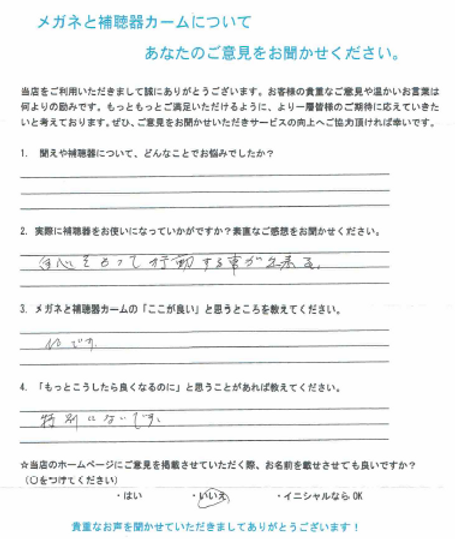 メガネと補聴器カームについて
あなたのご意見をお聞かせください。
当店をご利用いただきまして誠にありがとうございます。お客様の貴重なご意見や温かいお言葉は
何よりの励みです。もっともっとご満足いただけるように、より一層皆様のご期待に応えていきた
いと考えております。ぜひ、ご意見をお聞かせいただきサービスの向上へご協力頂ければ幸いです。
1. 聞えや補聴器について、どんなことでお悩みでしたか?
2. 実際に補聴器をお使いになっていかがですか?素直なご感想をお聞かせください。
自心をもって行動する事が出来る。
3. メガネと補聴器カームの「ここが良い」と思うところを教えてください。
です。
4. 「もっとこうしたら良くなるのに」と思うことがあれば教えてください。
特別にないです。
☆当店のホームページにご意見を掲載させていただく際、お名前を載せさせても良いですか?
(〇をつけてください)
・はい ・いいえ ・イニシャルなら OK
貴重なお声を聞かせていただきましてありがとうございます!